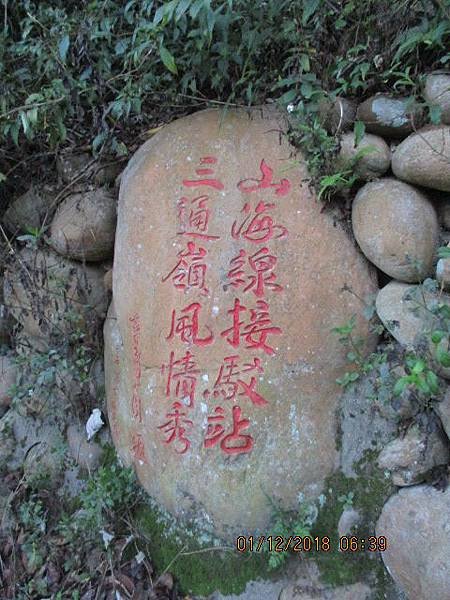 山海線接駁站
三通嶺風情秀
01/12/2018 06:39